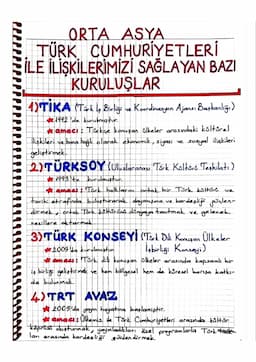 ORTA ASYA
TÜRK CUMHURİYETLERİ
İLE İLİŞKİLERİMİZİ SAĞLAYAN BAZI
KURULUŞLAR
1) TİKA (Türk İş Birliği ve Koordinasyon Ajansı Başkanlığı)
★ 1992'de kurulmuştur.
★ amacı: Türkçe konuşan ülkeler arasındaki kültürel
ilişkileri ve buna bağlı olarak ekonomik, siyasi ve sosyal ilişkileri
geliştirmek.
2) TÜRKSOY (Uluslararası Türk Kültürü Teşkilatı)
★ 1993'te kurulmuştur.
★ amacı: Türk halklarını ortak bir Türk kültürü ve
tarihi etrafında buluşturarak dayanışma ve kardeşliği güçlen-
dirmek, ortak Türk kültürünü dünyaya tanıtmak ve gelecek
nesillere aktarmak
3) TÜRK KONSEYİ (Türk Dili Konuşan Ülkeler
İşbirliği Konseyi)
★ 2009'da kurulmuştur.
★ amacı: Türk dili konuşan ülkeler arasında kapsamlı bir
iş birliği geliştirmek ve hem bölgesel hem de küresel barışa katkı-
da bulunmak.
4) TRT AVAZ
★ 2009'da yayın hayatına başlamıştır.
★ amacı: Ülkemiz ile Türk Cumhuriyetleri arasında kültür
köprüsü oluşturmak, yayınladıkları özel programlarla Türk
ları arasında kardeşliği güçlendirmek.